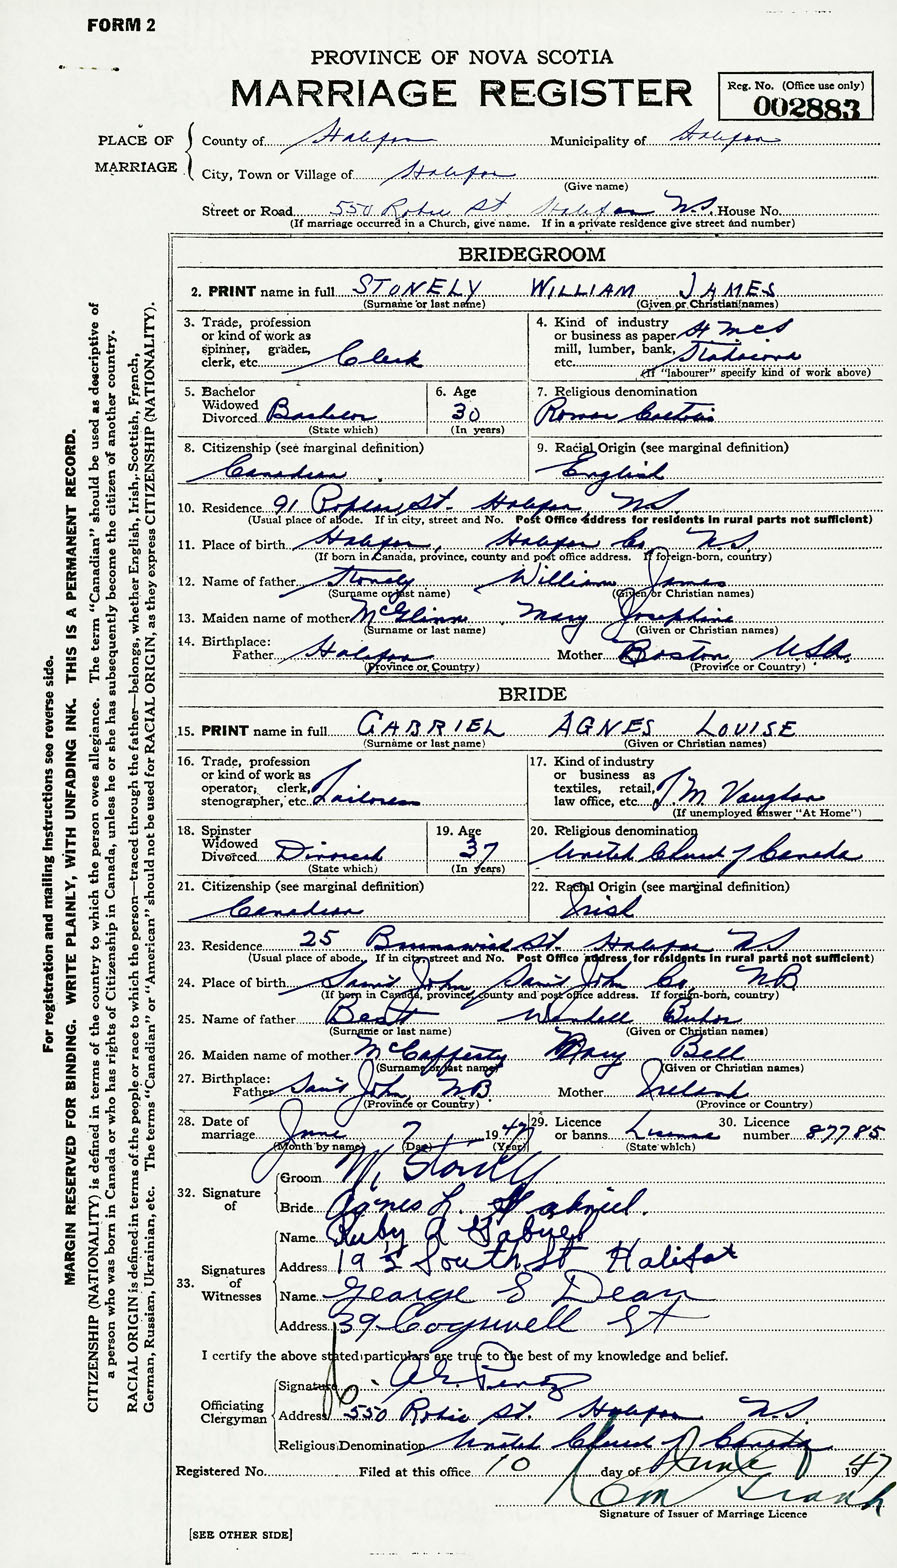 FORM 2
PROVINCE OF NOVA SCOTIA
MARRIAGE REGISTER
Reg. No. (Office use only)
002883
PLACE OF MARRIAGE
County of Halifax Municipality of Halifax
City, Town or Village of Halifax
(Give name)
Street or Road 550 Robie St. Halifax N.S. House No.
(If marriage occurred in a Church, give name. If in a private residence give street and number)
BRIDEGROOM
2. PRINT name in full STONELY WILLIAM JAMES
(Surname or last name) (Given or Christian names)
3. Trade, profession or kind of work as spinner, grader, clerk, etc. Clerk
4. Kind of industry or business as paper mill, lumber, bank, etc. HMCS Stadacona
(If "labourer" specify kind of work above)
5. Bachelor Widowed Divorced Bachelor
(State which)
6. Age 30
(In years)
7. Religious denomination
Roman Catholic
8. Citizenship (see marginal definition)
Canadian
9. Racial Origin (see marginal definition)
English
10. Residence 91 St. Halifax N.S.
(Usual place of abode. If in city, street and No. Post Office address for residents in rural parts not sufficient)
11. Place of birth Halifax, Halifax Co. N.S.
(If born in Canada, province, county and post office address. If foreign-born, country)
12. Name of father Stonely William James
(Surname or last name) (Given or Christian names)
13. Maiden name of mother McGlinn Mary Josephine
(Surname or last name) (Given or Christian names)
14. Birthplace:
Father Halifax Mother Boston, U.S.A.
(Province or Country) (Province or Country)
BRIDE
15. PRINT name in full GABRIEL AGNES LOUISE
(Surname or last name) (Given or Christian names)
16. Trade, profession or kind of work as operator, clerk, stenographer, etc. Tailoress
17. Kind of industry or business as textiles, retail, law office, etc. J. M. Vaughan
(If unemployed answer "At Home")
18. Spinster Widowed Divorced Divorced
(State which)
19. Age 37
(In years)
20. Religious denomination
United Church of Canada
21. Citizenship (see marginal definition)
Canadian
22. Racial Origin (see marginal definition)
Irish
23. Residence 25 Brunswick St. Halifax N.S.
(Usual place of abode. If in city, street and No. Post Office address for residents in rural parts not sufficient)
24. Place of birth Saint John, Saint John Co, N.B.
(If born in Canada, province, county and post office address. If foreign-born, country)
25. Name of father Wendell
(Surname or last name) (Given or Christian names)
26. Maiden name of mother McCafferty Mary Bell
(Surname or last name) (Given or Christian names)
27. Birthplace:
Father Saint John, N.B. Mother Ireland
(Province or Country) (Province or Country)
28. Date of marriage June 7 1947
(Month by name) (Day) (Year)
29. Licence or banns License
(State which)
30. Licence number 87785
32. Signature of
Groom W Stonely
Bride Agnes L. Gabriel.
33. Signatures of Witnesses
Name Ruby A Gabriel
Address 195 South St Halifax
Name George E Dean
Address 39 Cogswell St
I certify the above stated particulars are true to the best of my knowledge and belief.
Officiating Clergyman
Signature
Address 550 Robie St. Halifax N.S.
Religious Denomination United Church of Canada
Registered No. Filed at this office 10 day of June 1947
Signature of Issuer of Marriage Licence
[SEE OTHER SIDE]
For registration and mailing instructions see reverse side.
MARGIN RESERVED FOR BINDING. WRITE PLAINLY, WITH UNFADING INK. THIS IS A PERMANENT RECORD.
CITIZENSHIP (NATIONALITY) is defined in terms of the country to which the person owes allegiance. The term "Canadian" should be used as descriptive of
a person who was born in Canada or who has rights of Citizenship in Canada, unless he or she has subsequently become the citizen of another country.
RACIAL ORIGIN is defined in terms of the people or race to which the person—traced through the father—belongs, whether English, Irish, Scottish, French,
German, Russian, Ukrainian, etc. The terms "Canadian" or "American" should not be used for RACIAL ORIGIN, as they express CITIZENSHIP (NATIONALITY).